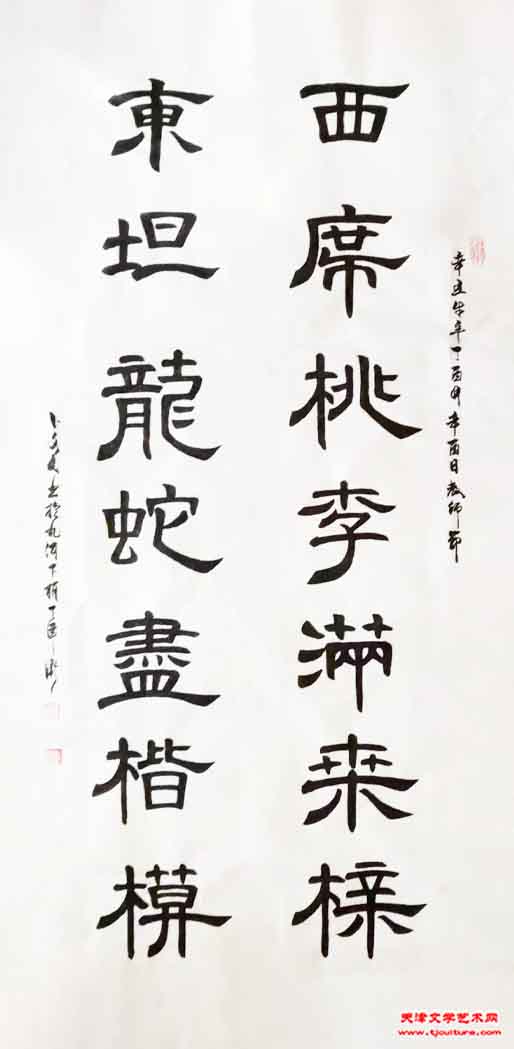 西席桃李滿桒榟
東坦龍蛇盡楷模
辛丑年丁酉月辛酉日教師節
天津文学艺术网
www.tjculture.com